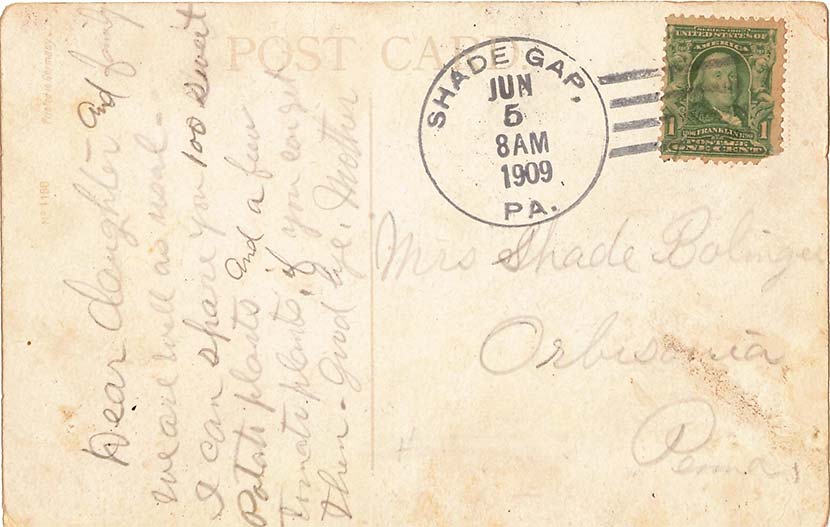 POST CARD
Printed in Germany
Nº 1196
SHADE GAP,
JUN
5
8AM
1909
PA.
SERIES 1902
UNITED STATES OF
AMERICA
1 FRANKLIN 1
POSTAGE
ONE CENT
Dear daughter and family
we are well as usual -
I can spare you 100 sweet
Potato plants and a few
Tomato plants, if you can get
them - Good bye, Mother
Mrs Shade Bolinger
Orbisonia
Penna,